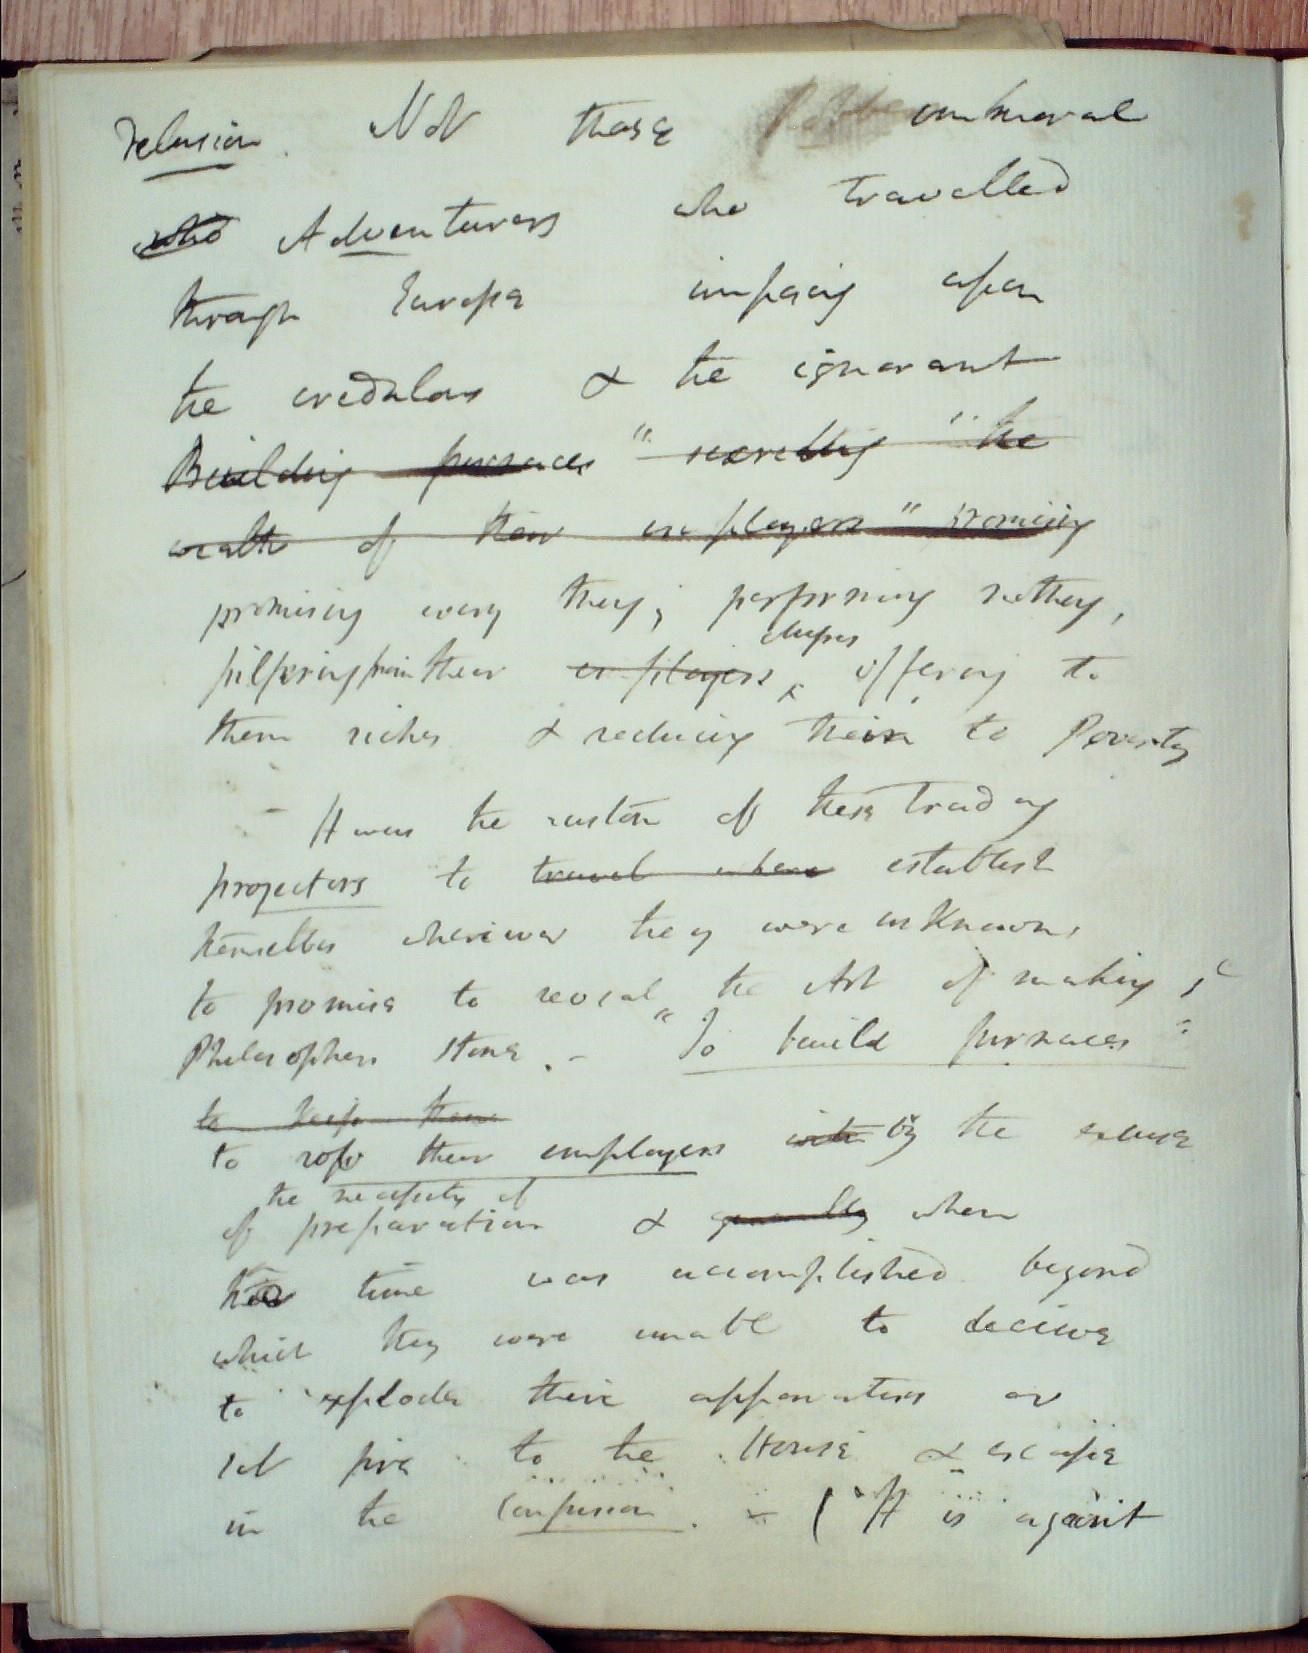 Delusion. Not those unknown
who Adventurers who travelled
through Europe imposing upon
the credulous & the ignorant
Building furnaces " the
wealth of their employers" promising
promising every thing; performing nothing,
dupes
pilfering from their employers ‸ offering to
them riches & reducing them to Poverty
- It was the custom of these Trading
projectors to travel where establish
themselves wherever they were unknown,
to promise to reveal the Art of making ye
Philosophers stone. - "To build furnaces"
to keep them
to rob their employers with by the excuse
the necessity of
of preparation & generally when
the time was accomplished beyond
which they were unable to deceive
to explode their apparatus or
set fire to the House & escape
in the Confusion. - ( It is against